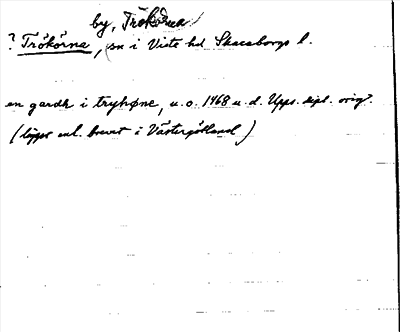 by, Trökörna
? Trökörna, sn i Viste hd Skaraborgs l.
en gardh i tryhøne, u.o. 1468 u.d. Upps. dipl. orig.
(ligger enl. brevet i Västergötland)